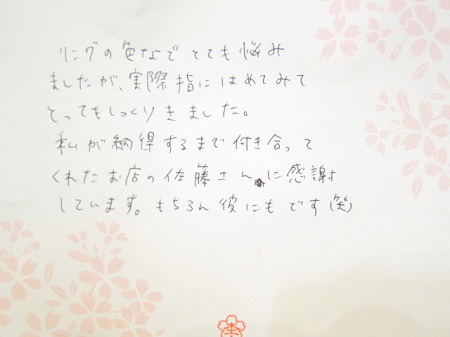 リングの色などとても悩み
ましたが、実際指にはめてみて
とってもしっくりきました。
私が納得するまで付き合って
くれたお店の佐藤さんに感謝
しています。もちろん彼にもです(笑)